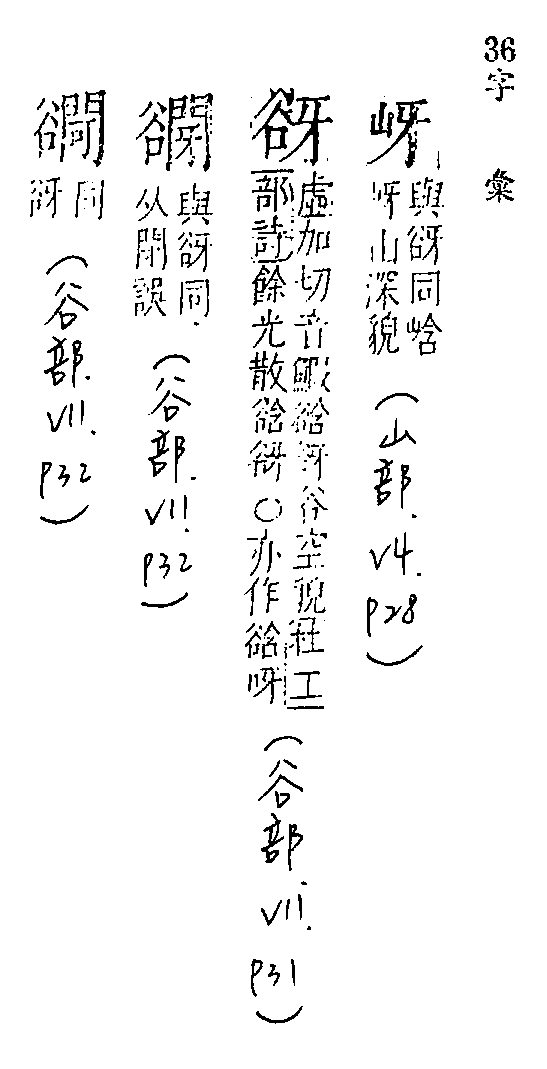 36字 彙
岈
與谺同㟏
岈山深貌
(山部. V4. P28)
谺
虛加切音鰕谽谺谷空貌杜工
部詩餘光散谽谺○亦作谽呀
(谷部. V11. P31)
與谺同.
从誤
(谷部. V11. P32)
同
谺
(谷部. V11. P32)